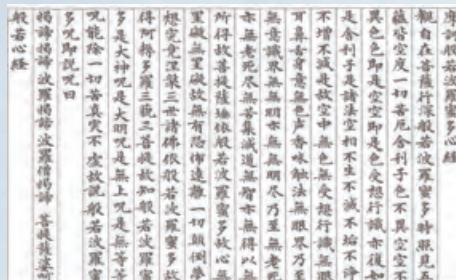 摩訶般若波羅蜜多心経
観自在菩薩行深般若波羅蜜多時照見
蘊皆空度一切苦厄舎利子色不異空空
異色色即是空空即是色受想行識亦復
是舎利子是諸法空相不生不滅不垢不浄
不増不減是故空中無色無受想行識無眼
耳鼻舌身意無色声香味触法無眼界乃至
無意識界無無明亦無無明尽乃至無老死
亦無老死尽無苦集滅道無智亦無得以無
所得故菩提薩埵依般若波羅蜜多故心無
罣礙無罣礙故無有恐怖遠離一切顛倒夢
想究竟涅槃三世諸佛依般若波羅蜜多故
得阿耨多羅三藐三菩提故知般若波羅蜜
多是大神呪是大明呪是無上呪是無等等
呪能除一切苦真実不虚故説般若波羅蜜
多呪即説呪曰
掲諦掲諦波羅掲諦波羅僧掲諦 菩提薩婆
般若心経